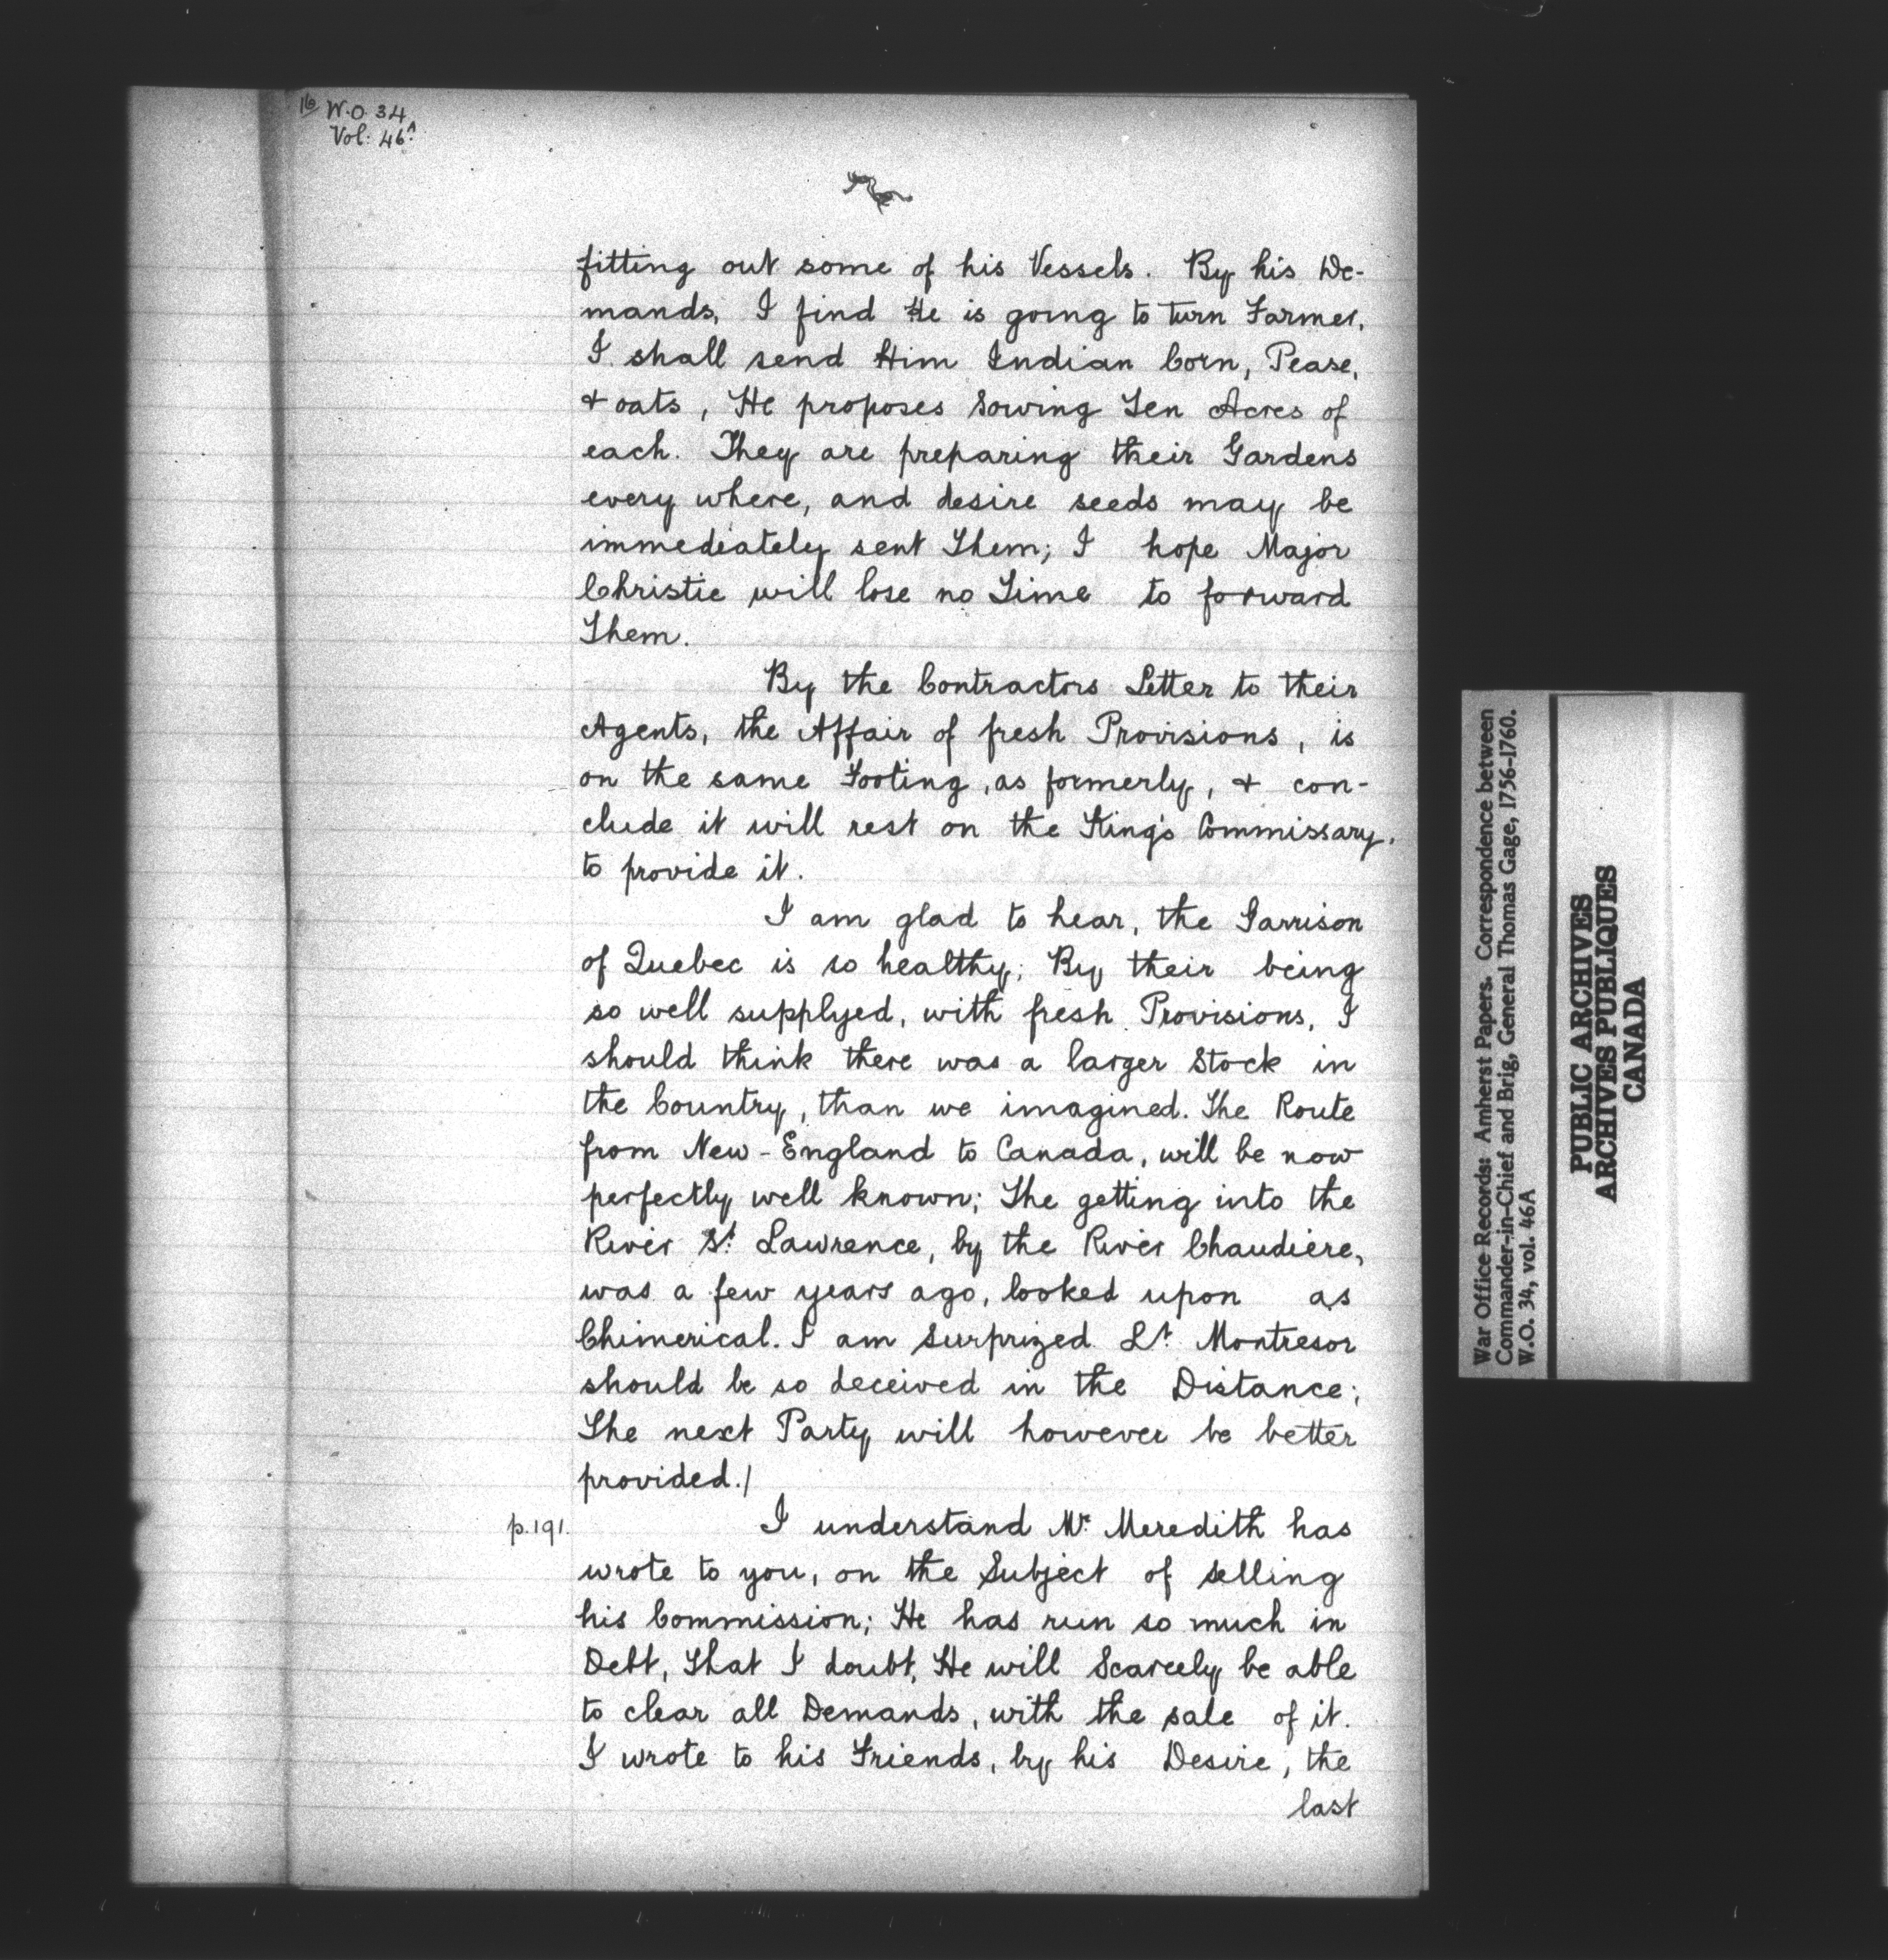 W.O. 34
Vol: 46A
fitting out some of his Vessels. By his De-
mands, I find He is going to turn Farmer.
I shall send Him Indian Corn, Pease,
& oats, He proposes Sowing Ten Acres of
each. They are preparing their Gardens
every where, and desire seeds may be
immediately sent Them; I hope Major
Christie will lose no Time to forward
Them.
By the Contractors Letter to their
Agents, the Affair of fresh Provisions, is
on the same Footing, as formerly, & con-
clude it will rest on the King's Commissary.
to provide it.
I am glad to hear, the Garrison
of Quebec is so healthy; By their being
so well supplyed, with fresh Provisions, I
should think there was a larger Stock in
the Country, than we imagined. The Route
from New-England to Canada, will be now
perfectly well known; The getting into the
River St. Lawrence, by the River Chaudiere,
was a few years ago, looked upon as
Chimerical. I am Surprized Lt. Montresor
should be so deceived in the Distance;
The next Party will however be better
provided./
p.191. I understand Mr. Meredith has
wrote to you, on the Subject of selling
his Commission; He has run so much in
Debt, that I doubt, He will Scarcely be able
to clear all Demands, with the sale of it.
I wrote to his Friends, by his Desire, the
last
War Office Records: Amherst Papers. Correspondence between
Commander-in-Chief and Brig. General Thomas Gage, 1756-1760.
W.O. 34, vol. 46A
PUBLIC ARCHIVES
ARCHIVES PUBLIQUES
CANADA